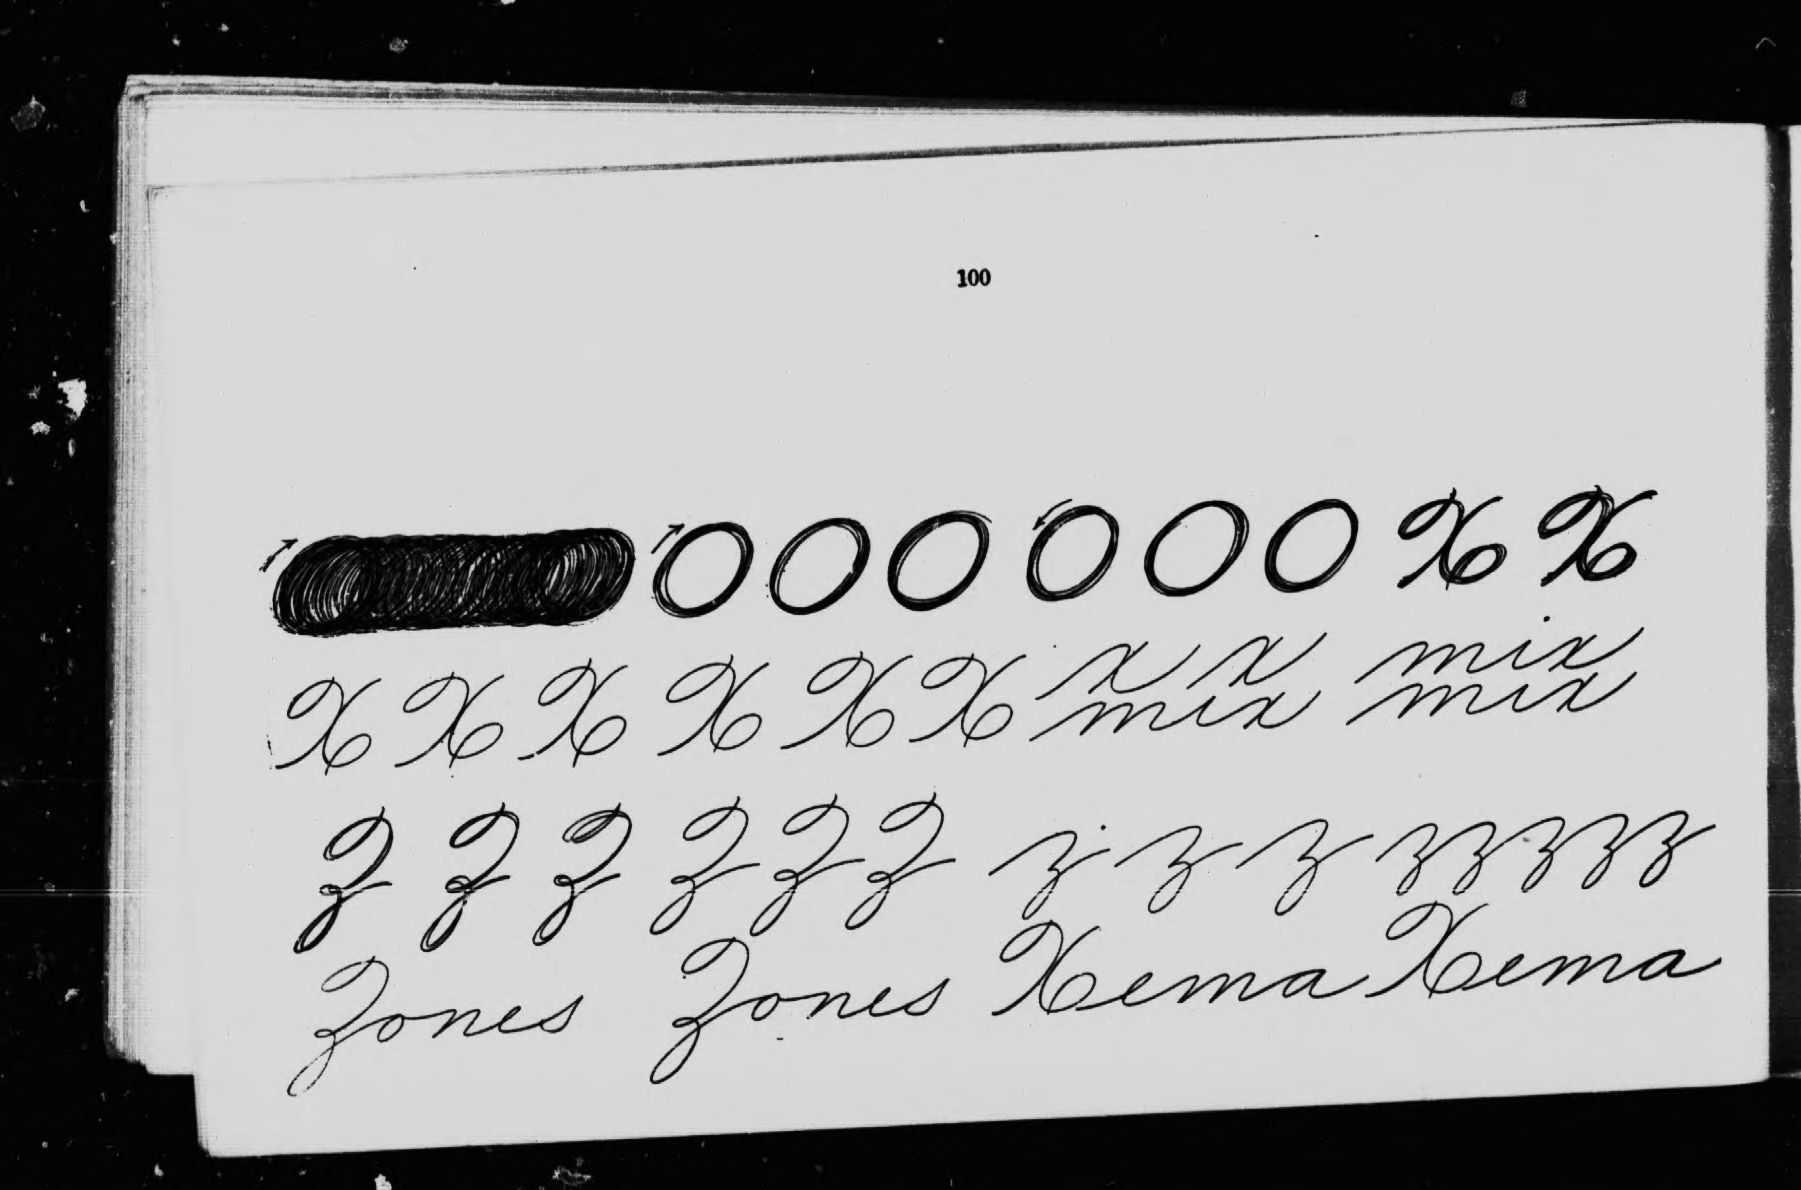 100
O O O O O O X X
X X X X X X x x mix
mix mix
Z Z Z Z Z Z z z z zzzzz
Zones Zones Xema Xema